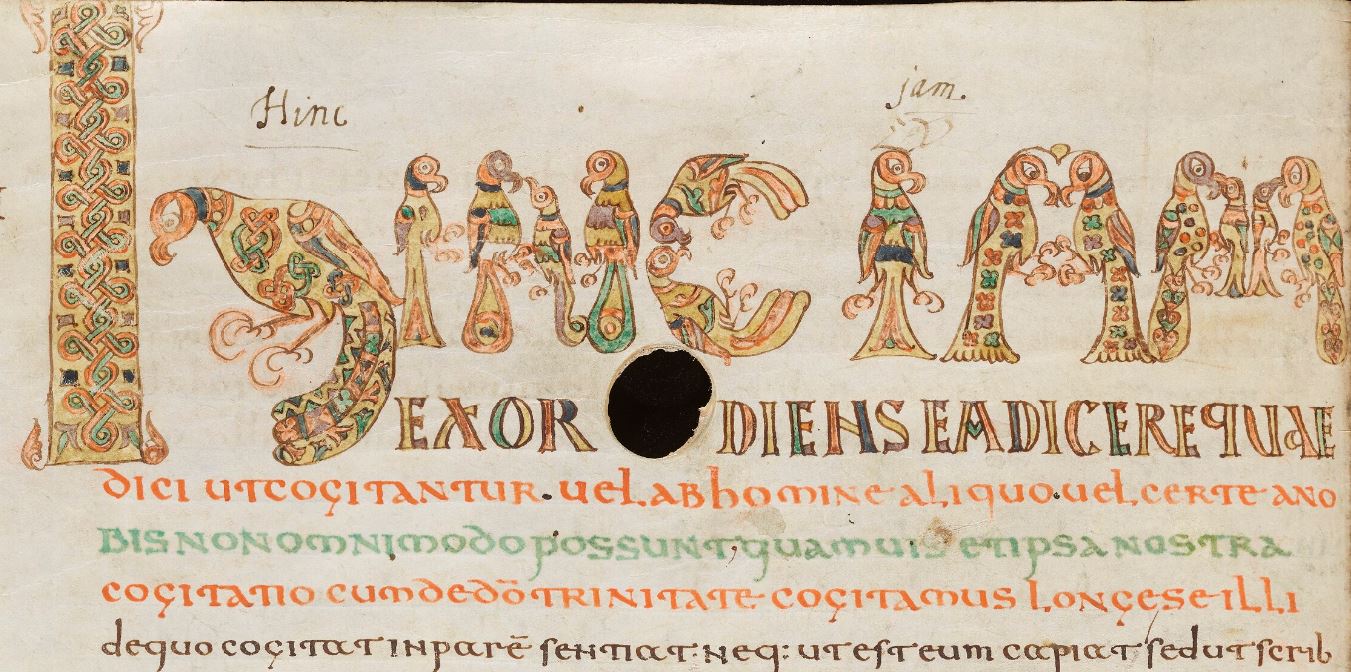 Hinc jam.
HINC IAM
EXORDIENS EA DICERE QUAE
DICI UT COGITANTUR. UEL AB HOMINE ALIQUO. UEL CERTE A NO
BIS NON OMNI MODO POSSUNT, QUAMUIS ET IPSA NOSTRA
COGITATIO CUM DE DŌ TRINITATE COGITAMUS LONGE SE ILLI
de quo cogitat inparē sentiat. neq: ut est eum capiat sed ut scrib